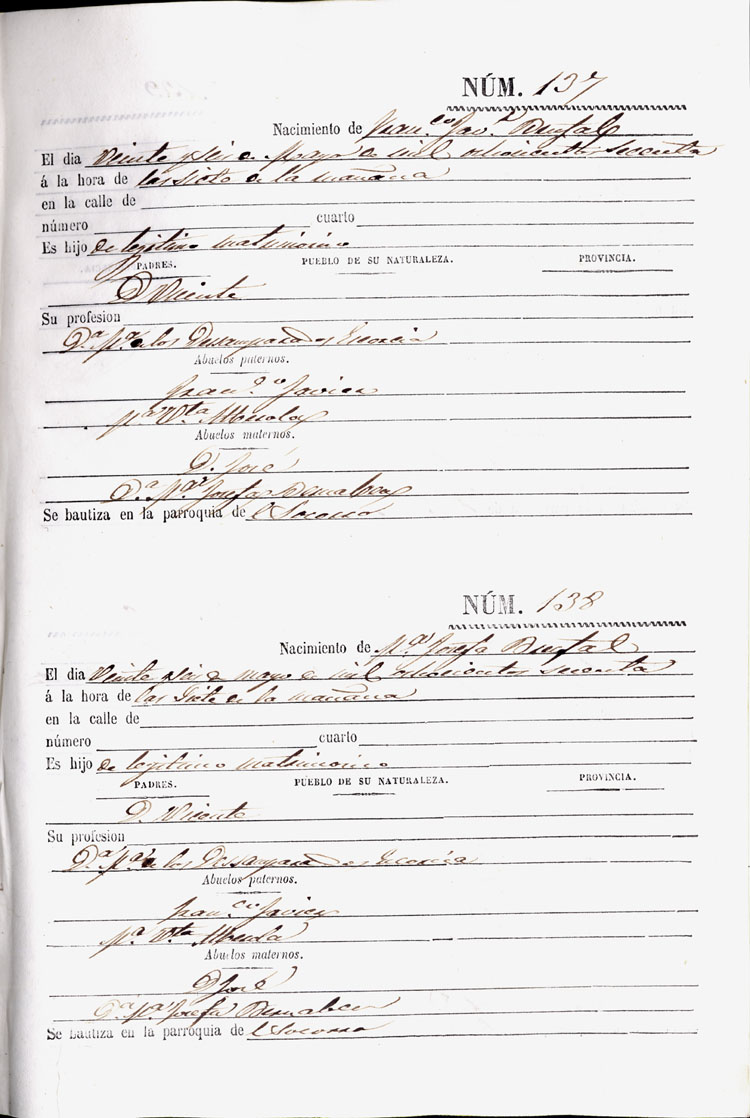 NÚM. 137
Nacimiento de Fran.co Jav.r
El dia Veinte y seis de Mayo de mil ochocientos sesenta
á la hora de las siete de la mañana
en la calle de
número cuarto
Es hijo de legitimo matrimonio
PADRES. PUEBLO DE SU NATURALEZA. PROVINCIA.
D. Vicente
Su profesion
D.a M.a de los Desamparados
Abuelos paternos.
Fran.co Javier
M.a V.ta
Abuelos maternos.
D. José
D.a M.a Josefa
Se bautiza en la parroquia de el Socorro
NÚM. 138
Nacimiento de M.a Josefa
El dia Veinte y seis de mayo de mil ochocientos sesenta
á la hora de las siete de la mañana
en la calle de
número cuarto
Es hijo de legitimo matrimonio
PADRES. PUEBLO DE SU NATURALEZA. PROVINCIA.
D. Vicente
Su profesion
D.a M.a de los Desamparados
Abuelos paternos.
Fran.co Javier
M.a V.ta
Abuelos maternos.
D. José
D.a M.a Josefa
Se bautiza en la parroquia de el Socorro